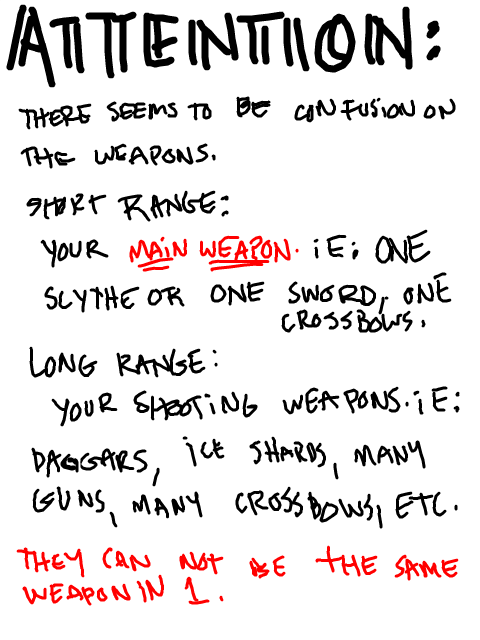 ATTENTION:
THERE SEEMS TO BE CONFUSION ON
THE WEAPONS.
SHORT RANGE:
YOUR MAIN WEAPON. iE: ONE
SCYTHE OR ONE SWORD, ONE
CROSSBOWS.
LONG RANGE:
YOUR SHOOTING WEAPONS. iE:
DAGGARS, ICE SHARDS, MANY
GUNS, MANY CROSSBOWS, ETC.
THEY CAN NOT BE THE SAME
WEAPON IN 1.